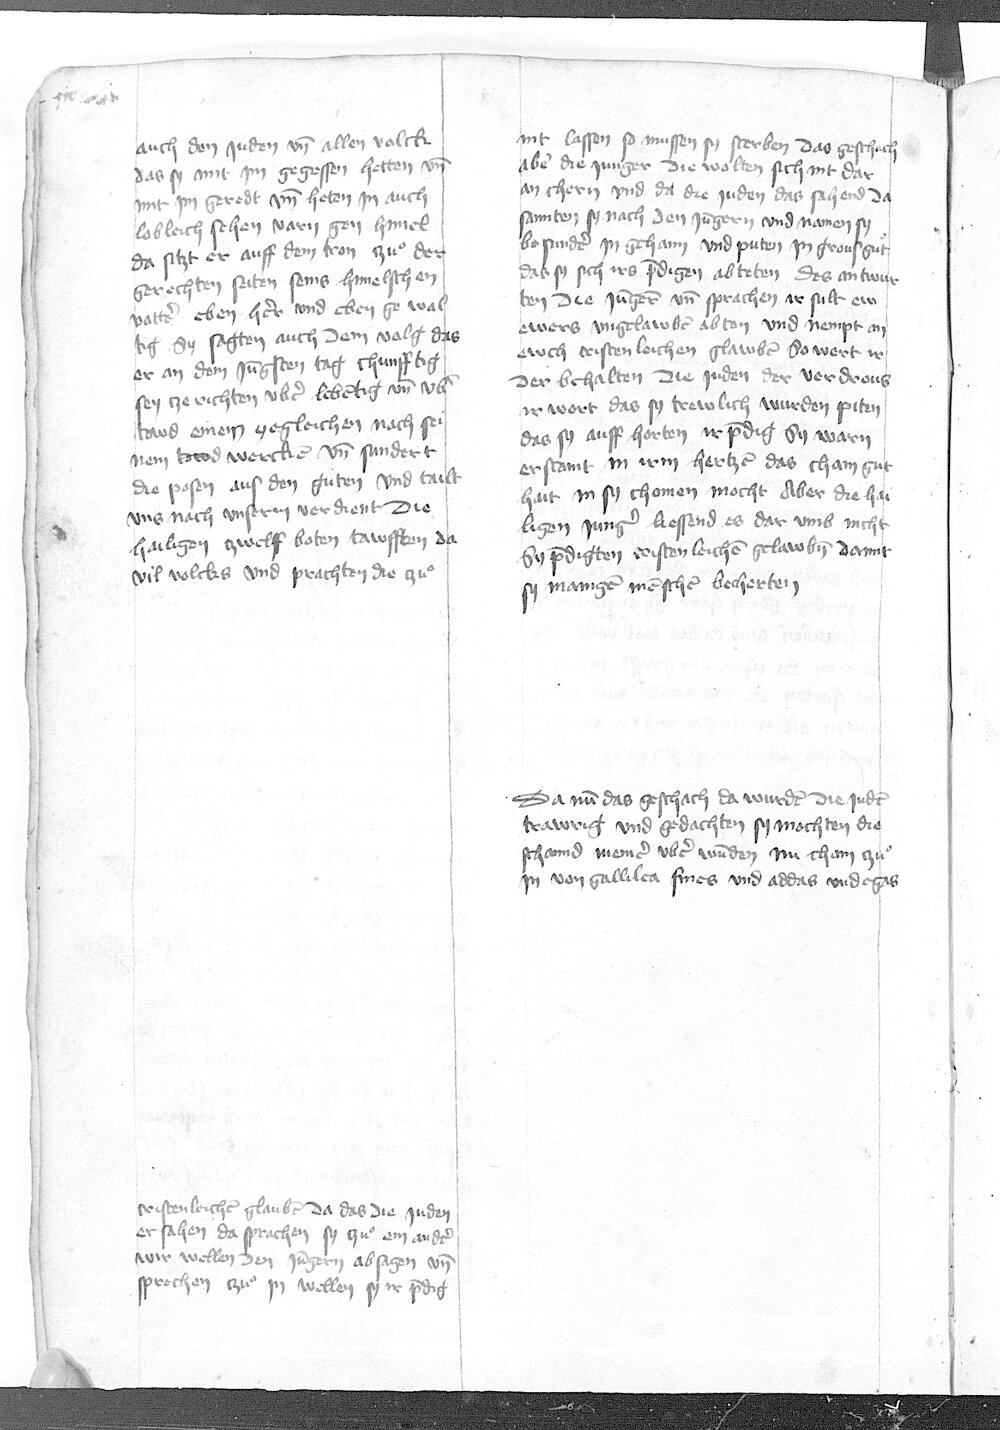 auch den juden vñ allen volck
das sy mit im gegessen hetten vñ
mit im geredt vñ heten in auch
lobleich sehen varn gen himel
da sitzt er auff dem tron czuͦ der
gerechten seiten seins himelschen
vatter̄ eben her̄r und eben ge wal
tig Sy sagten auch dem volg das
er an dem Jūgsten tag chunfftig
sey cze richten vber̄ lebētig vñ vbr̄
towd einem yegleichen nach sei
nem towd werckē vñ sundert
die posen aus den guten und tailt
uns nach unserm verdient Die
hailigen czwelff boten tawfften da
vil volcks und prachten die czuͦ
cristenleichē glaubē Da das die juden
er sahen da sprachen sy czuͦ ein andr̄
wir wellen den jūgern ab sagen vñ
sprechen czuͦ in wellen sy ir p̄dig
nit lassen so mussen sy sterben Das geschach
aber̄ die junger die wolten sich nit dar
an chern und da die juden das sahend da
sannten sy nach den jūgern und namen sy
besunder̄ in geham und puten in grous guͦt
das sy sich irs p̄digen ab teten des antwur
ten die jūger̄ vñ sprachen ir sult ew
ewers ungelawbē ab ton und nempt an
ewch cristenleichen glawbē So wert ir
der behalten Die juden der verdrous
ir wort das sy trewlich wurden piten
das sy auff horten ir p̄dig Sy warn
erstamt in irm hertzē das cham gut
hait in sy chomen mocht Aber die hai
ligen jungr̄ liessend es dar umb nicht
Sy p̄digten cristenleichē gelawbn̄ damit
sy manigē mēschē becherten
Da nū das geschach da wurdē die judē
trawrig und gedachten sy mochten die
schannd niemer̄ vber̄ wūden Nu cham czuͦ
in von gallilea fines und addas und egas